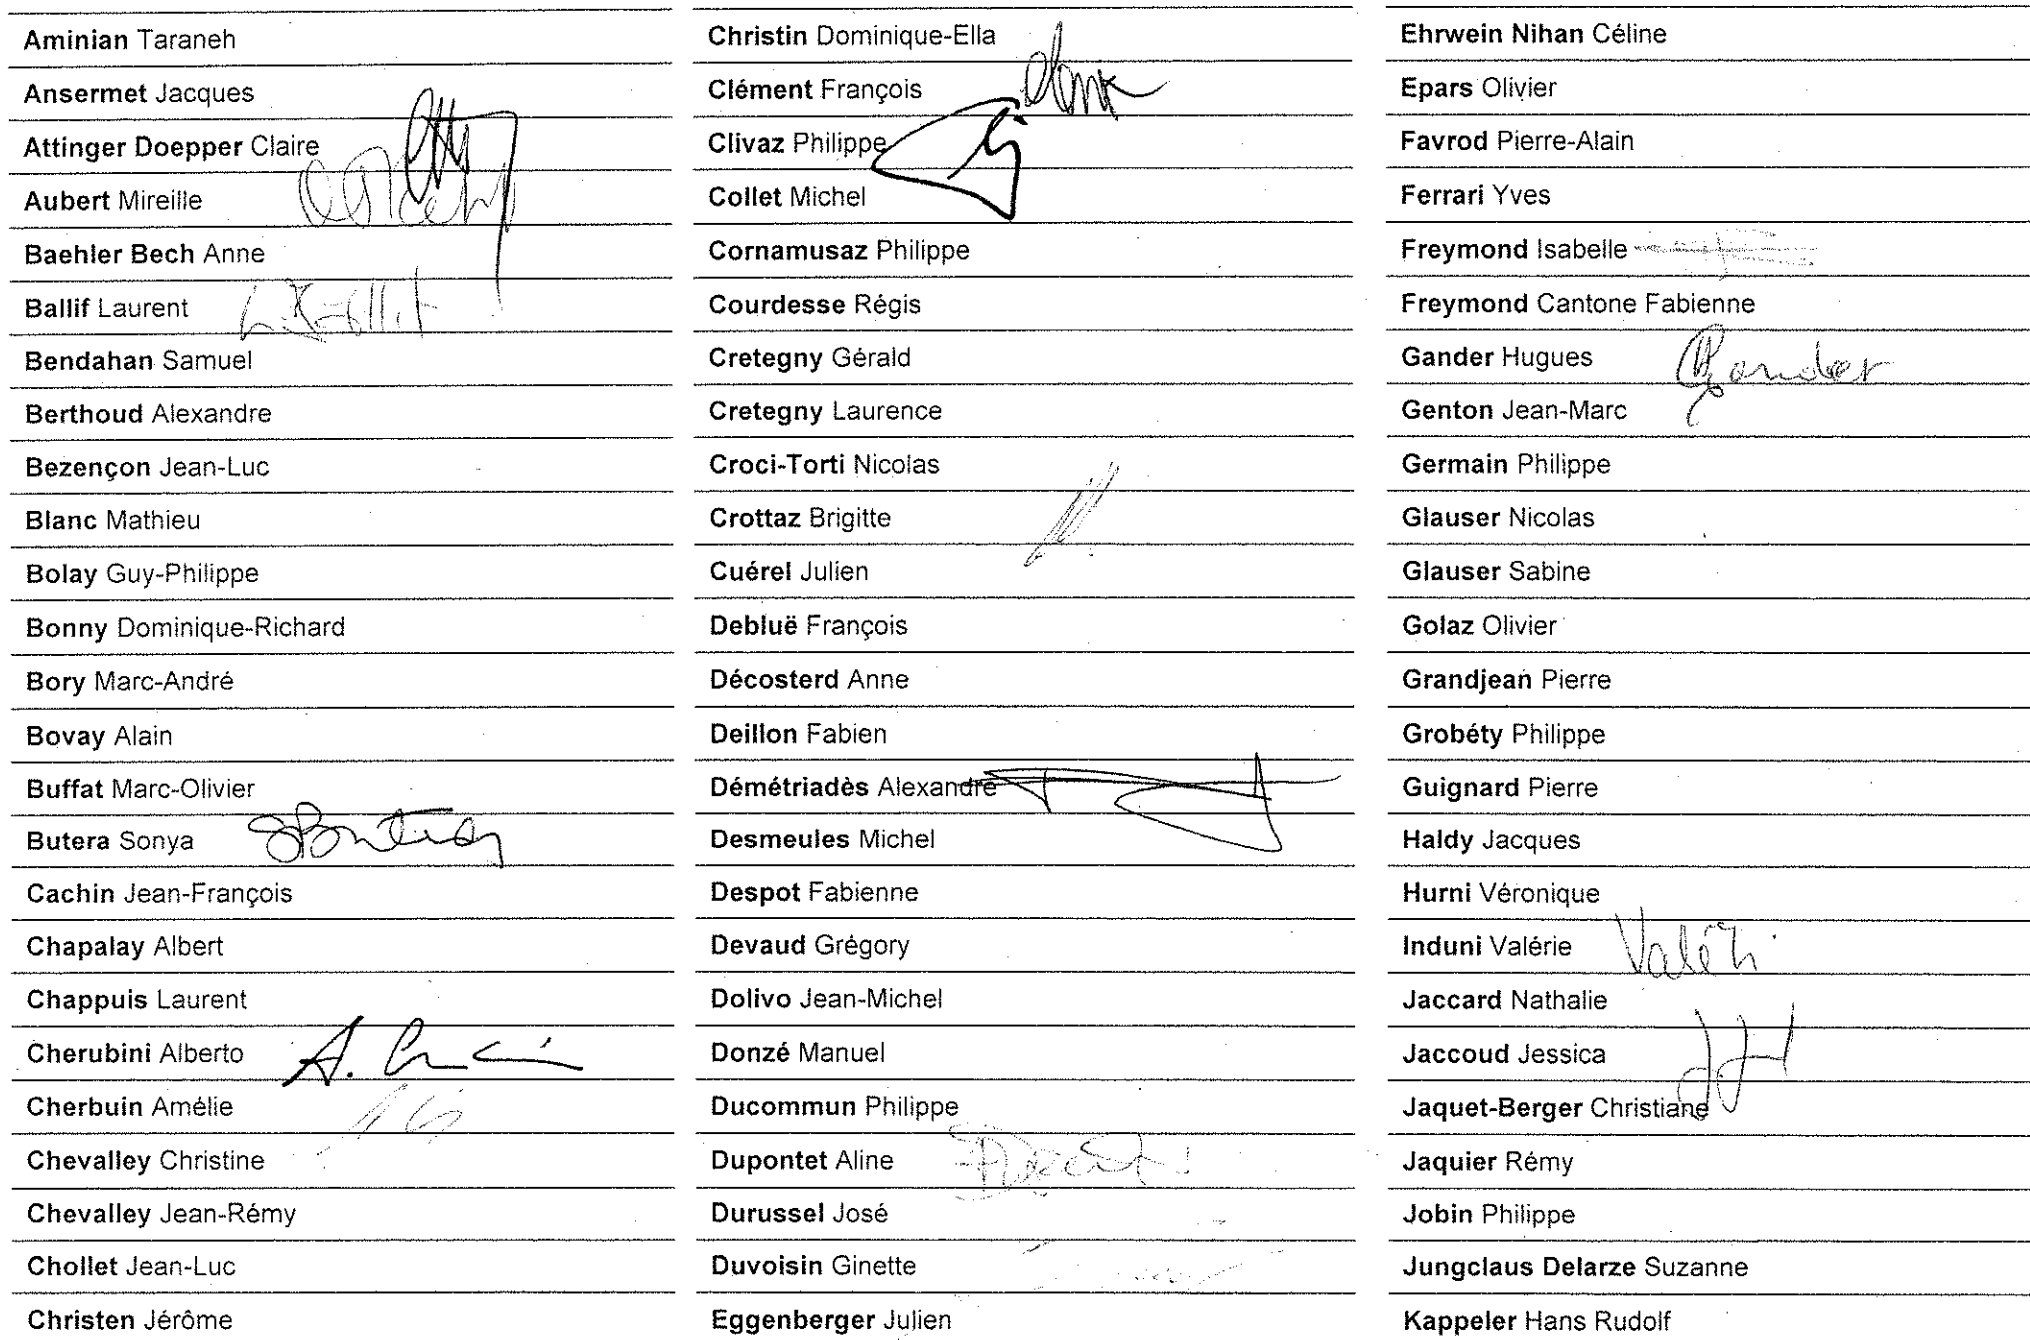 Aminian Taraneh
Ansermet Jacques
Attinger Doepper Claire
Aubert Mireille
Baehler Bech Anne
Ballif Laurent
Bendahan Samuel
Berthoud Alexandre
Bezençon Jean-Luc
Blanc Mathieu
Bolay Guy-Philippe
Bonny Dominique-Richard
Bory Marc-André
Bovay Alain
Buffat Marc-Olivier
Butera Sonya
Cachin Jean-François
Chapalay Albert
Chappuis Laurent
Cherubini Alberto
Cherbuin Amélie
Chevalley Christine
Chevalley Jean-Rémy
Chollet Jean-Luc
Christen Jérôme
Christin Dominique-Ella
Clément François
Clivaz Philippe
Collet Michel
Cornamusaz Philippe
Courdesse Régis
Cretegny Gérald
Cretegny Laurence
Croci-Torti Nicolas
Crottaz Brigitte
Cuérel Julien
Debluë François
Décosterd Anne
Deillon Fabien
Démétriadès Alexandre
Desmeules Michel
Despot Fabienne
Devaud Grégory
Dolivo Jean-Michel
Donzé Manuel
Ducommun Philippe
Dupontet Aline
Durussel José
Duvoisin Ginette
Eggenberger Julien
Ehrwein Nihan Céline
Epars Olivier
Favrod Pierre-Alain
Ferrari Yves
Freymond Isabelle
Freymond Cantone Fabienne
Gander Hugues Gander
Genton Jean-Marc
Germain Philippe
Glauser Nicolas
Glauser Sabine
Golaz Olivier
Grandjean Pierre
Grobéty Philippe
Guignard Pierre
Haldy Jacques
Hurni Véronique
Induni Valérie
Jaccard Nathalie
Jaccoud Jessica
Jaquet-Berger Christiane
Jaquier Rémy
Jobin Philippe
Jungclaus Delarze Suzanne
Kappeler Hans Rudolf